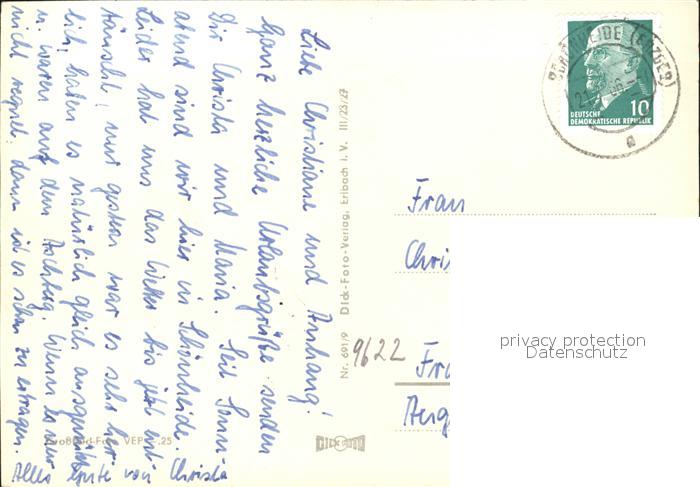 Liebe Christiane und Anhang!
Ganz herzliche Urlaubsgrüße senden
Dir Christa und Maria. Seit Sonn-
abend sind wir hier in Schönheide.
Leider hat uns das Wetter bis jetzt ent-
täuscht, nur gestern war es sehr herr-
lich, haben es natürlich gleich ausgenützt
u. waren auf dem Aschberg. Wenn es nur
nicht regnet, dann ist es schon zu ertragen.
Alles Gute von Christa
Großbild-Foto VEP -.25
Nr. 691/9 Dick-Foto-Verlag, Erlbach i. V. III/23/27
DICK FOTO
SCHÖNHEIDE (ERZGEB)
21.
a
10
DEUTSCHE
DEMOKRATISCHE REPUBLIK
Frau
Chri
9622 Fra
Aug
privacy protection
Datenschutz